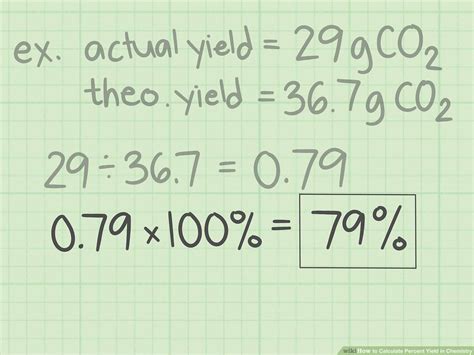 ex. actual yield = 29g CO₂
theo. yield = 36.7g CO₂
29 ÷ 36.7 = 0.79
0.79 × 100% = 79%
wiki How to Calculate Percent Yield in Chemistry